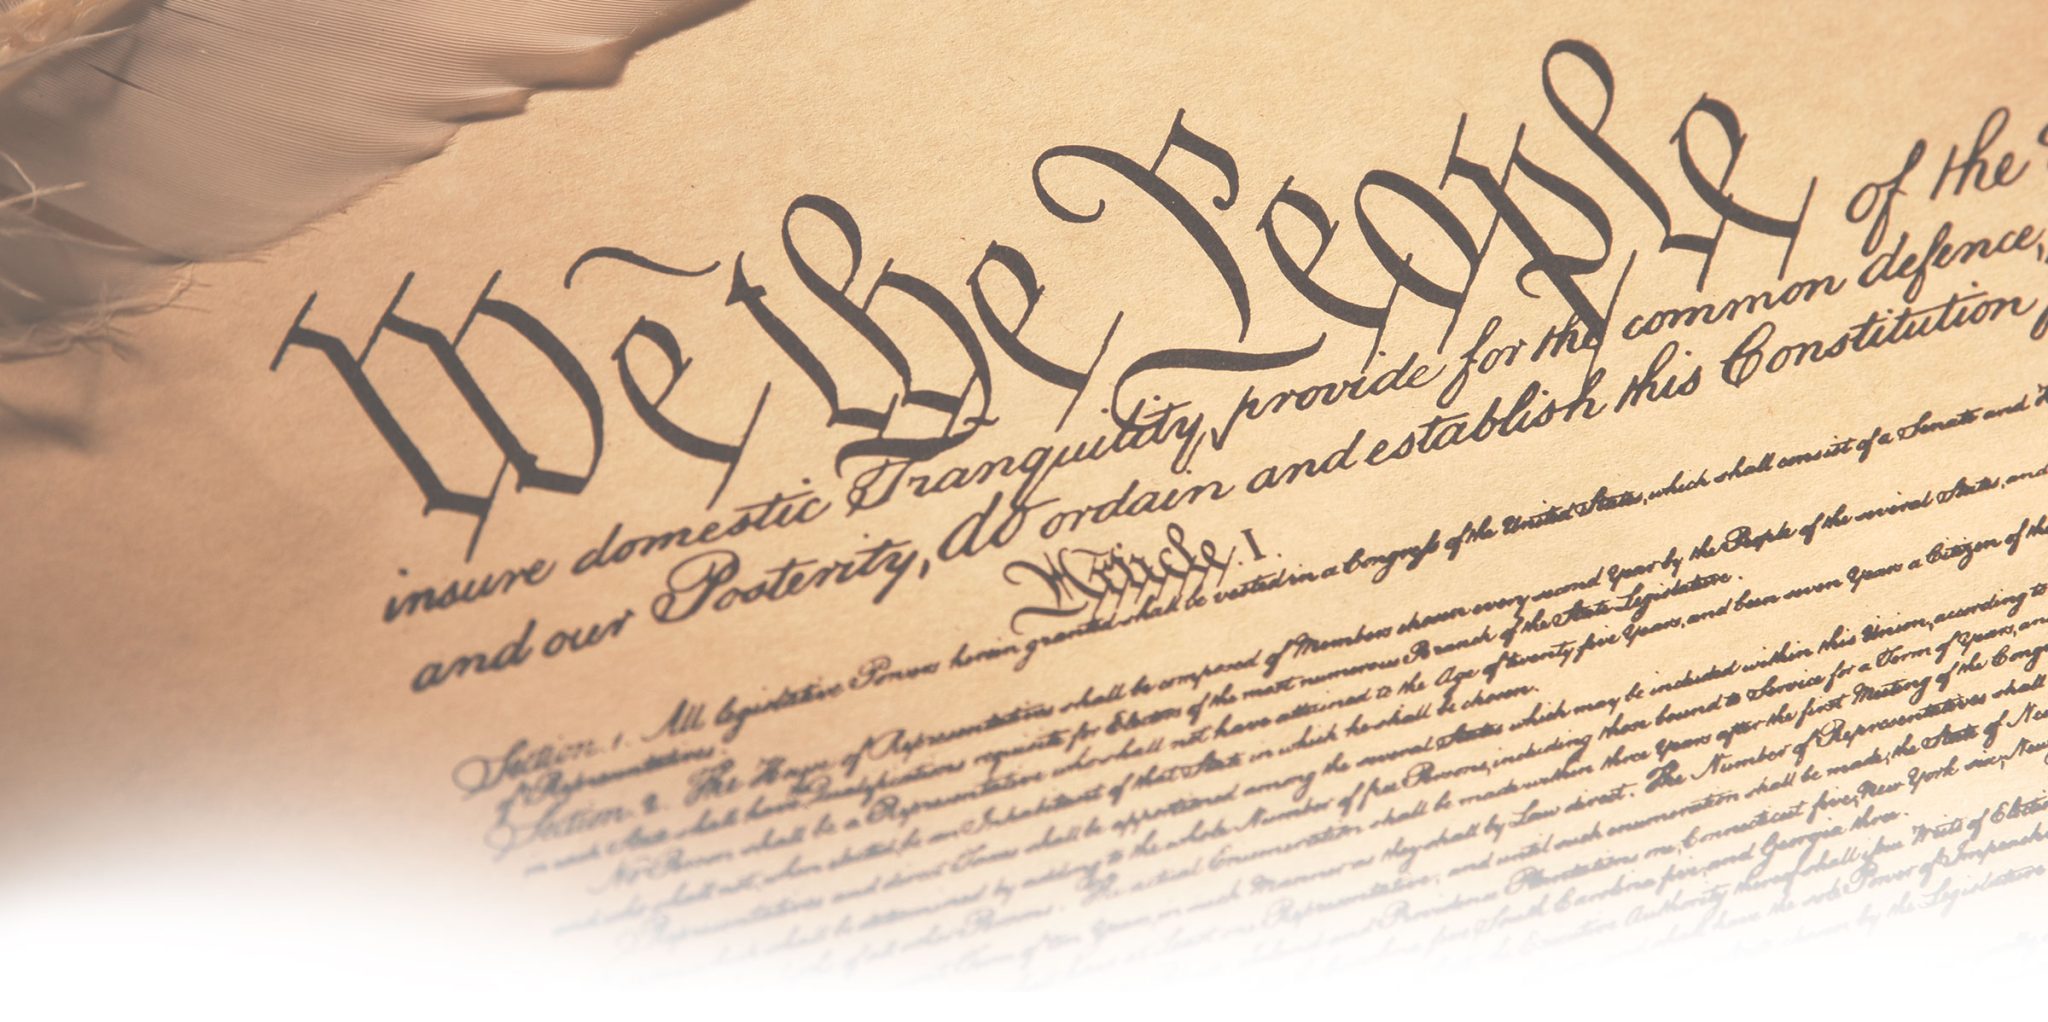 We the People of the
insure domestic Tranquility, provide for the common defence,
and our Posterity, do ordain and establish this Constitution
Article. I.
Section. 1. All legislative Powers herein granted shall be vested in a Congress of the United States, which shall consist of a Senate and
of Representatives.
Section. 2. The House of Representatives shall be composed of Members chosen every second Year by the People of the several States, and
in each State shall have the Qualifications requisite for Electors of the most numerous Branch of the State Legislature.
No Person shall be a Representative who shall not have attained to the Age of twenty five Years, and been seven Years a Citizen of the
and who shall not, when elected, be an Inhabitant of that State in which he shall be chosen.
Representatives and direct Taxes shall be apportioned among the several States which may be included within this Union, according to
which shall be determined by adding to the whole Number of free Persons, including those bound to Service for a Term of Years, and
of all other Persons. The actual Enumeration shall be made within three Years after the first Meeting of the
Term of ten Years, in such Manner as they shall by Law direct. The Number of Representatives shall
Representative; and until such enumeration shall be made, the State of
and Providence Plantations one, Connecticut five, New York six,
South Carolina five, and Georgia three.
Executive Authority thereof shall issue Writs of
shall have the sole Power of
by the Legislature